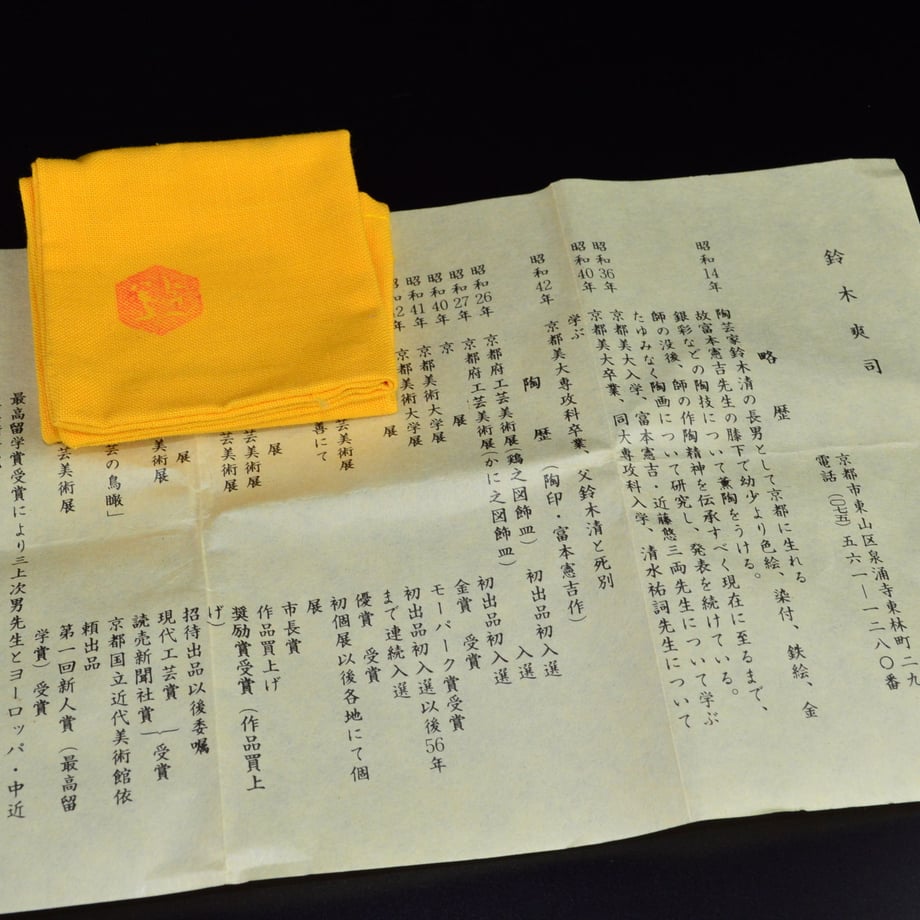 鈴木爽司
京都市東山区泉涌寺東林町二九
電話(〇七五)五六一―一二八〇番
略歴
昭和14年 陶芸家鈴木清の長男として京都に生れる
故富本憲吉先生の膝下で幼少より色絵、染付、鉄絵、金
銀彩などの陶技について薫陶をうける。
師の没後、師の作陶精神を伝承すべく現在に至るまで、
たゆみなく陶画について研究し、発表を続けている。
昭和36年 京都美大入学、富本憲吉・近藤悠三両先生について学ぶ
昭和40年 京都美大卒業、同大専攻科入学、清水祐詞先生について
学ぶ
昭和42年 京都美大専攻科卒業、父鈴木清と死別
陶歴(陶印・富本憲吉作)
昭和26年 京都府工芸美術展(鶏之図飾皿) 初出品初入選
昭和27年 京都府工芸美術展(かに之図飾皿) 入選
昭和40年 京展 初出品初入選
昭和41年 京都美術大学展 金賞受賞
2年 京都美術大学展 モーパーク賞受賞
展 初出品初入選以後56年
まで連続入選
芸美術展 優賞受賞
にて 初個展以後各地にて個
展
展 市長賞
芸美術展 作品買上げ
芸美術展 奨励賞受賞(作品買上
げ)
展 招待出品以後委嘱
美術展 現代工芸賞
読売新聞社賞 受賞
芸の鳥瞰」 京都国立近代美術館依
頼出品
芸美術展 第一回新人賞(最高留
学賞)受賞
最高留学賞受賞により三上次男先生とヨーロッパ・中近